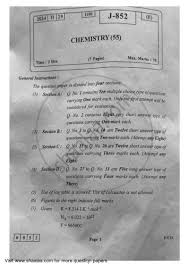 2024 II 29
J-852
(E)
CHEMISTRY (55)
Time : 3 Hrs.
(7 Pages)
Max. Marks : 70
General Instructions :
The question paper is divided into four sections.
(1) Section A : Q. No. 1 contains Ten multiple choice type of questions
carrying One mark each. Only the first attempt will be
considered for evaluation.
Q. No. 2 contains Eight very short answer type of
questions carrying One mark each.
(2) Section B : Q. No. 3 to Q. No. 14 are Twelve short answer type of
questions carrying Two marks each. (Attempt any
Eight)
(3) Section C : Q. No. 15 to Q. No. 26 are Twelve short answer type of
questions carrying Three marks each. (Attempt any
Eight)
(4) Section D : Q. No. 27 to Q. No. 31 are Five long answer type of
questions carrying Four marks each. (Attempt any
Three)
(5) Use of log table is allowed. Use of calculator is not allowed.
(6) Figures to the right indicate full marks.
(7) Given :
0 8 5 2
Page 1
P.T.O
Visit www.shaalaa.com for more question papers